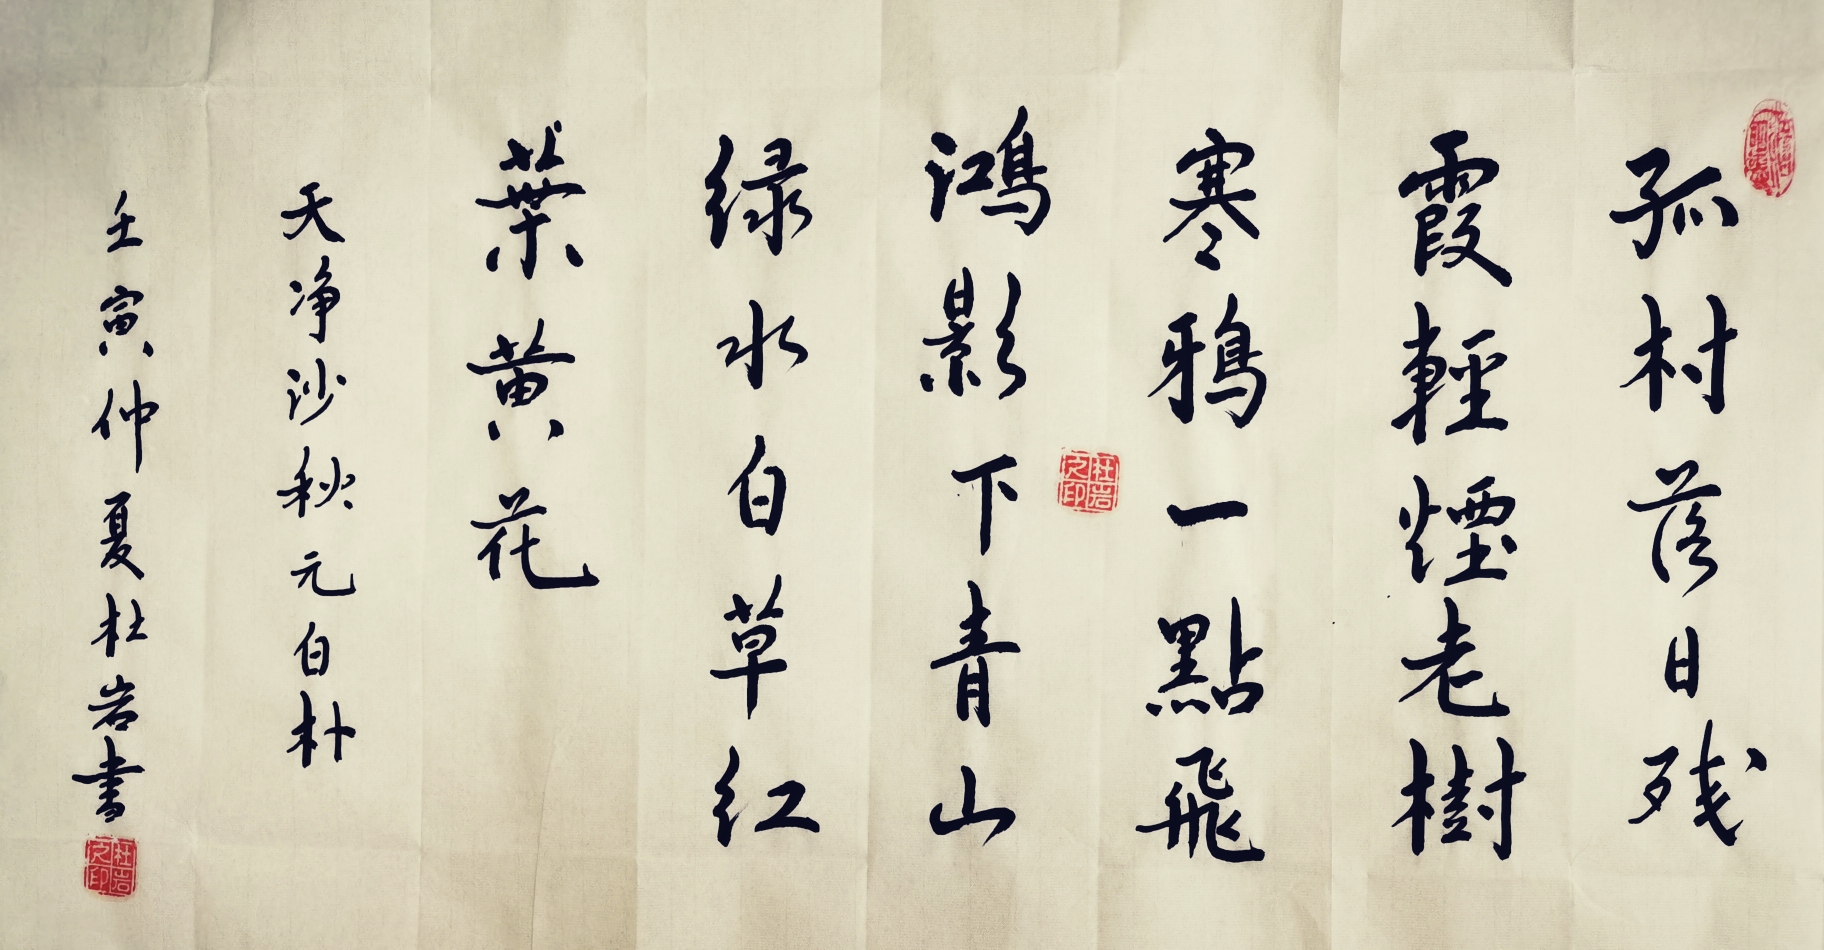 孤村落日残
霞輕煙老樹
寒鴉一點飛
鴻影下青山
绿水白草红
葉黄花
天净沙秋元白朴
壬寅仲夏杜岩書
杜岩之印
杜岩之印